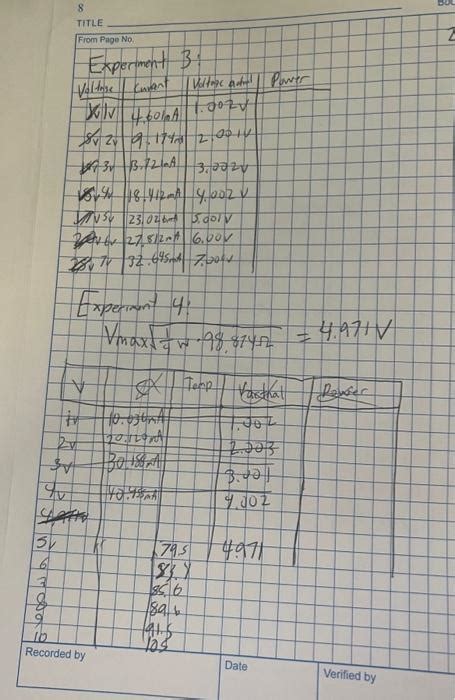 8
TITLE
From Page No.
Experiment 3:
Voltage Current Voltage actual Power
1v 4.601mA 1.002V
2v 9.174mA 2.001V
3v 13.721mA 3.002V
4v 18.412mA 4.002V
5v 23.026mA 5.001V
6v 27.812mA 6.00V
7v 32.695mA
Experiment 4:
Vmax √ 1/4 w · 98.874Ω = 4.971V
V Temp Vacthal Power
1v 10.030mA 1.002
2v 20.120mA 2.003
3v 30.188mA 3.001
4v 4.002
5v 79.5 4.971
6 83.4
7 85.6
8 89.6
9 91.5
10 105
Recorded by
Date
Verified by